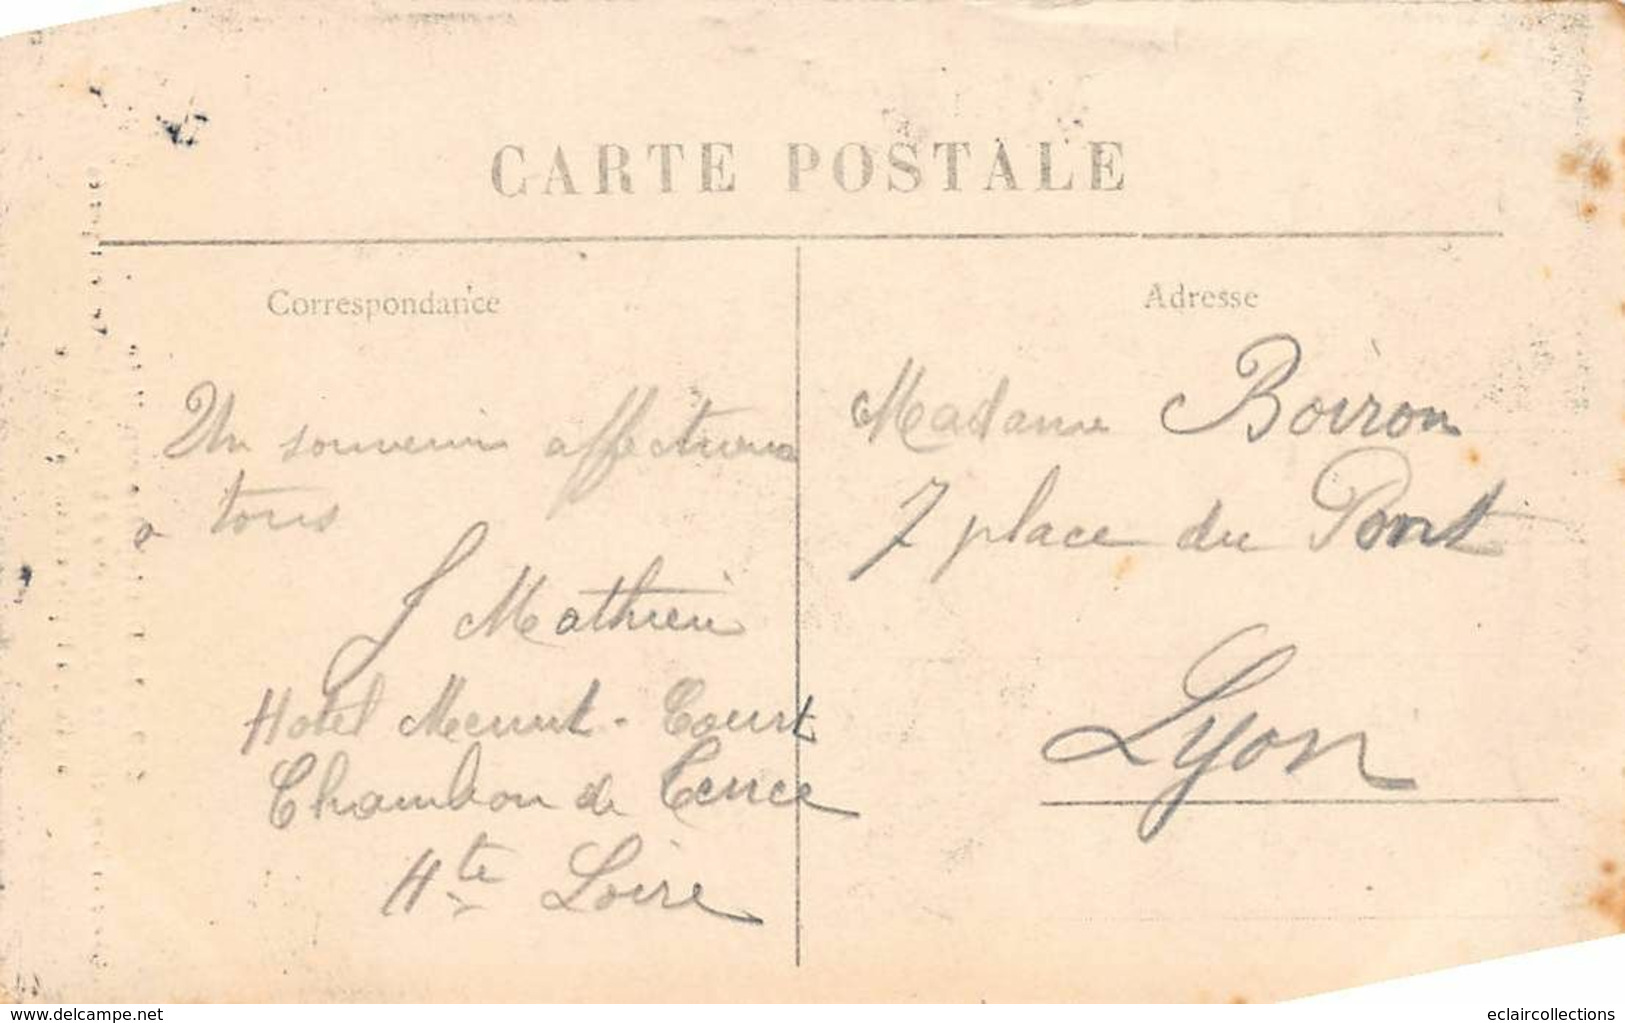 CARTE POSTALE
Correspondance
Un souvenir affectueux
a tous
J Mathieu
Hotel Menut-Court
Chambon de Tence
Hte Loire
Adresse
Madame Boiron
7 place du Pont
Lyon
www.delcampe.net
eclaircollections